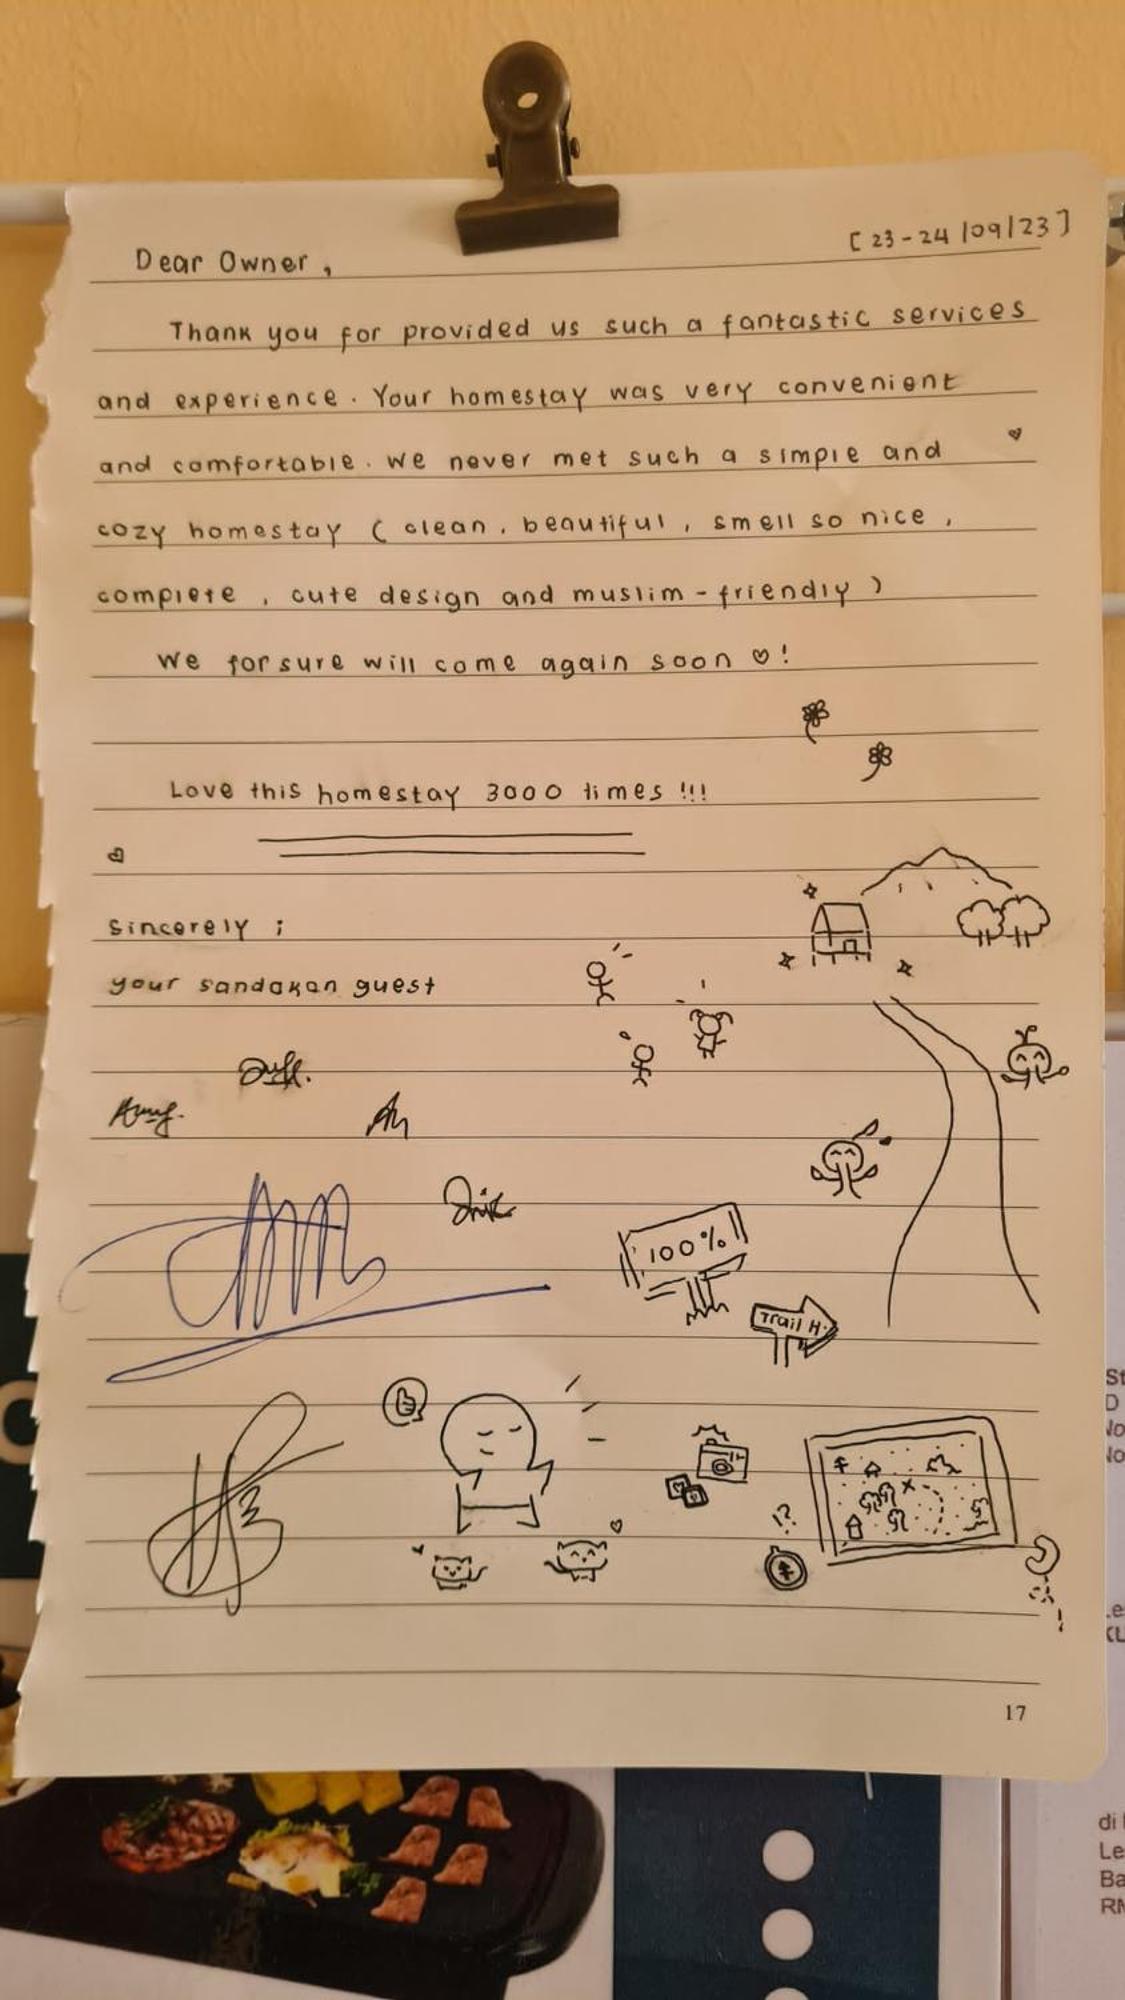 [23-24/09/23]
Dear Owner,
Thank you for provided us such a fantastic services
and experience. Your homestay was very convenient
and comfortable. We never met such a simple and
cozy homestay (clean, beautiful, smell so nice,
complete, cute design and muslim-friendly)
We for sure will come again soon ♡!
Love this homestay 3000 times !!!
Sincerely ;
your sandakan guest
100%
Trail H.
!?
17
di
Le
Ba
RM